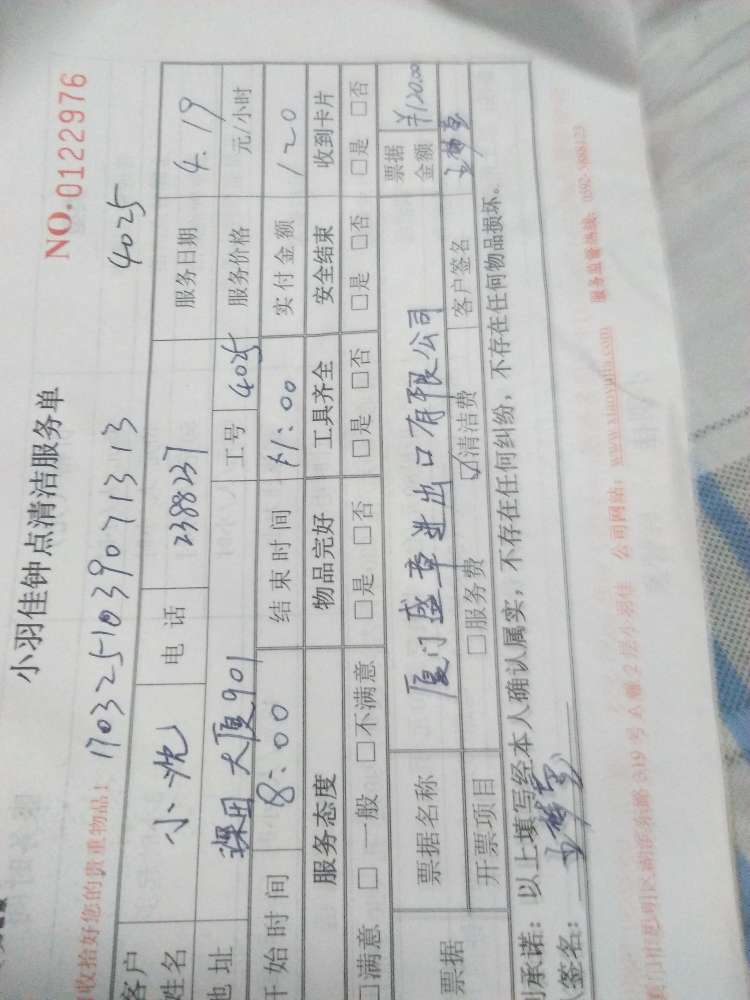 小羽佳钟点清洁服务单
NO.0122976
收拾好您的贵重物品！ 17032510390713 13 4025
客户姓名 小沈 电话 2388237 服务日期 4.19
地址 大厦901 工号 4025 服务价格 元/小时
开始时间 8:00 结束时间 11:00 实付金额 120
服务态度 物品完好 工具齐全 安全结束 收到卡片
□满意 □一般 □不满意 □是 □否 □是 □否 □是 □否 □是 □否
票据 票据名称 厦门盛章进出口有限公司 票据金额 ¥120.00
开票项目 □服务费 ☑清洁费 客户签名
承诺：以上填写经本人确认属实，不存在任何纠纷，不存在任何物品损坏。
签名：
公司网站：www.xiaoyujia.com 服务监督热线：0592-5688123